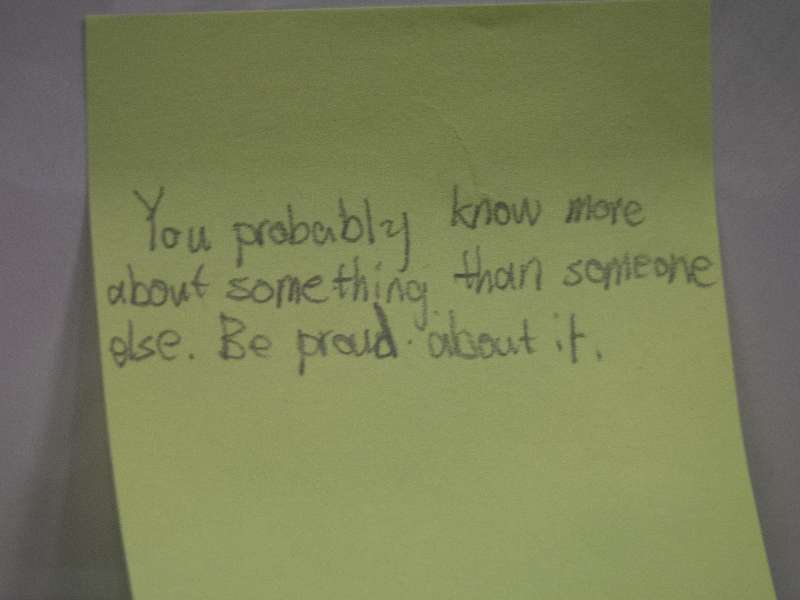 You probably know more
about something than someone
else. Be proud about it.